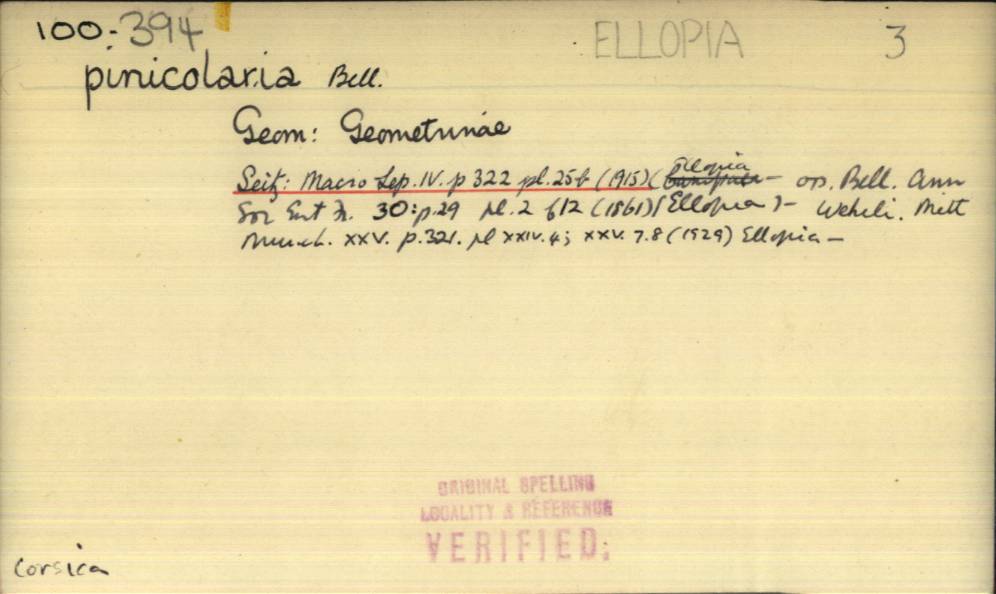 100.394 ELLOPIA 3
pinicolaria Bell.
Geom: Geometrinae
Seitz: Macro Lep. IV. p 322 pl. 25b (1915) (Ellopia — on. Bell. Ann
Soc Ent Fr. 30: p.29 pl. 2 f12 (1861) (Ellopia) — Wehrli. Mitt
Munch. XXV. p. 321. pl XXIV. 4; XXV. 7.8 (1929) Ellopia —
ORIGINAL SPELLING
LOCALITY & REFERENCE
VERIFIED:
Corsica